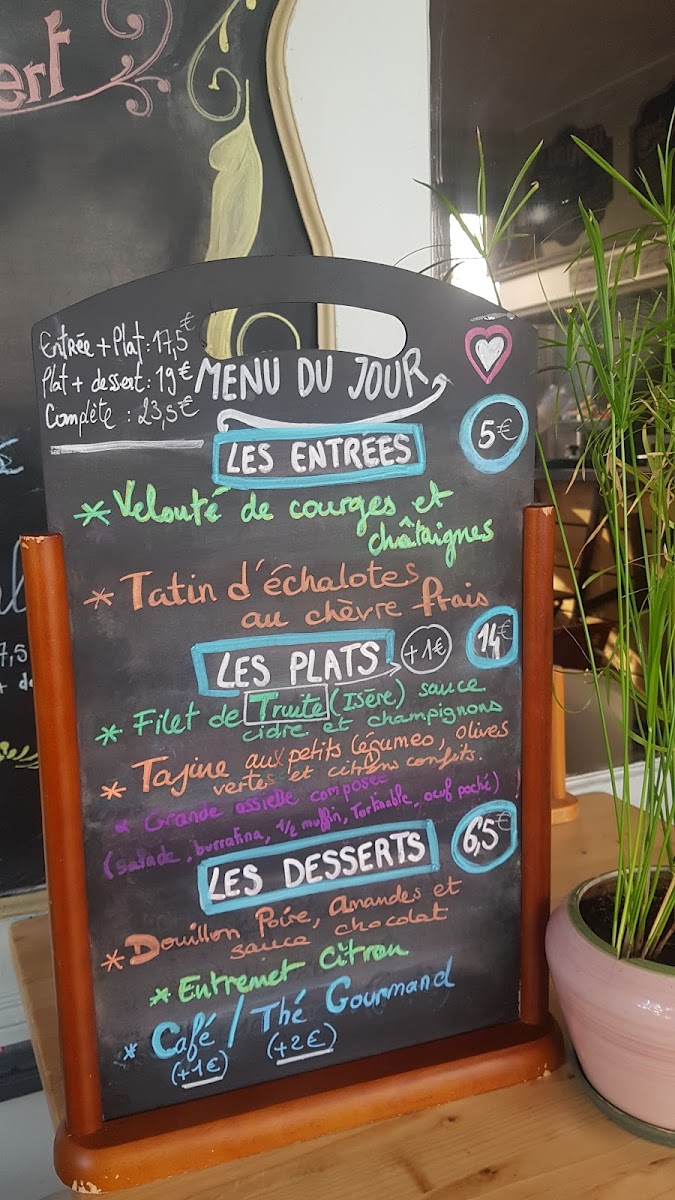 ert
Entrée + Plat : 17,5€
Plat + dessert : 19€
Complète : 23,5€
MENU DU JOUR
LES ENTREES
5€
* Velouté de courges et
châtaignes
* Tatin d'échalotes
au chèvre frais
LES PLATS
+1€
14€
* Filet de Truite (Isère) sauce
cidre et champignons
* Tajine aux petits légumes, olives
vertes et citrons confits.
* Grande assiette composée
(salade, burratina, 1/2 muffin, Tartinable, oeuf poché)
LES DESSERTS
6,5€
* Douillon Poire, Amandes et
sauce chocolat
* Entremet Citron
* Café / Thé Gourmand
(+1€) (+2€)
7,5